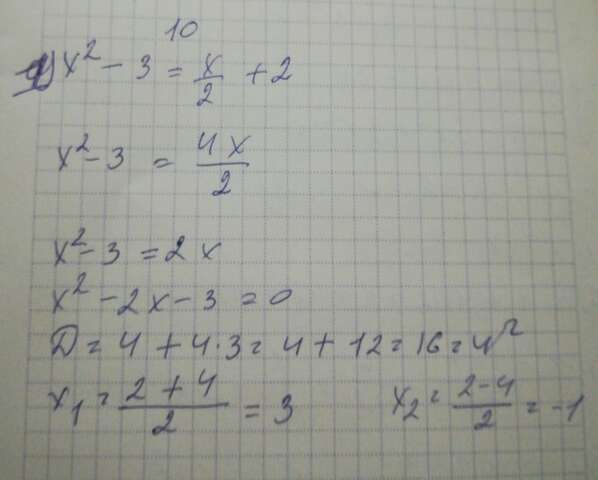 10
x² - 3 = x/2 + 2
x² - 3 = 4x/2
x² - 3 = 2x
x² - 2x - 3 = 0
D = 4 + 4·3 = 4 + 12 = 16 = 4²
x₁ = (2 + 4)/2 = 3 x₂ = (2 - 4)/2 = -1